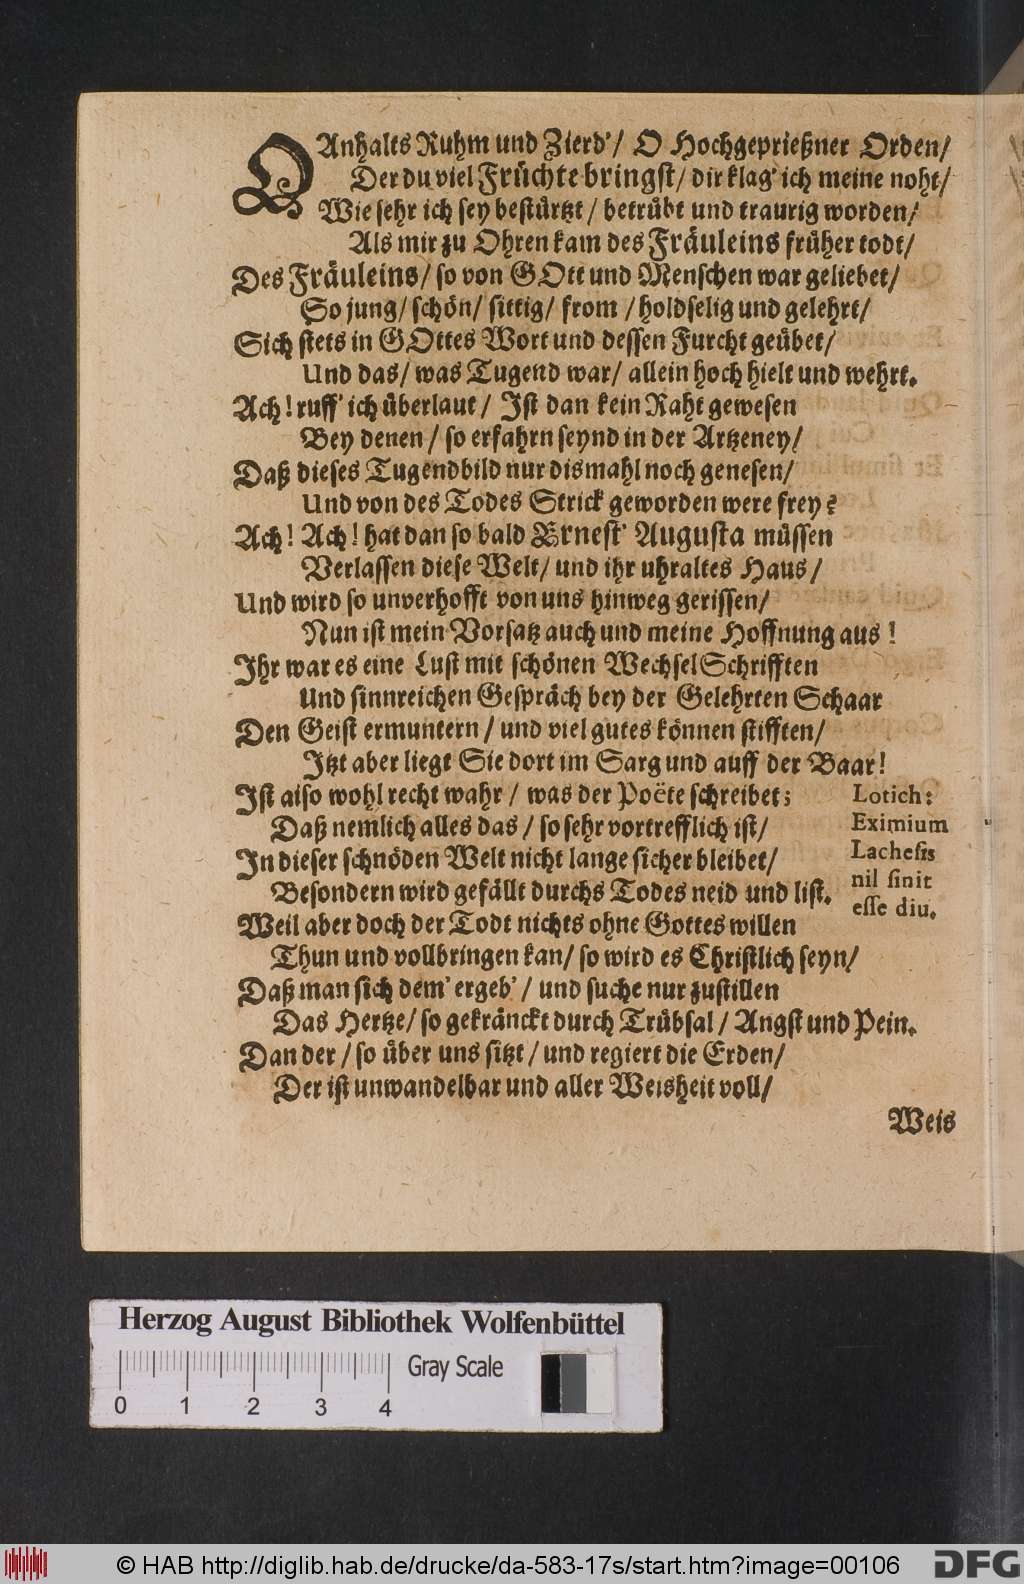 O Anhalts Ruhm und Zierd'/ O Hochgeprießner Orden/
Der du viel Früchte bringst/ dir klag' ich meine noht/
Wie sehr ich sey bestürtzt/ betrübt und traurig worden/
Als mir zu Ohren kam des Fräuleins früher todt/
Des Fräuleins/ so von GOtt und Menschen war geliebet/
So jung/ schön/ sittig/ from/ holdselig und gelehrt/
Sich stets in GOttes Wort und dessen Furcht geübet/
Und das/ was Tugend war/ allein hoch hielt und wehrt.
Ach! ruff' ich überlaut/ Ist dan kein Raht gewesen
Bey denen/ so erfahrn seynd in der Artzeney/
Daß dieses Tugendbild nur dismahl noch genesen/
Und von des Todes Strick geworden were frey?
Ach! Ach! hat dan so bald Ernest' Augusta müssen
Verlassen diese Welt/ und ihr uhraltes Haus/
Und wird so unverhofft von uns hinweg gerissen/
Nun ist mein Vorsatz auch und meine Hoffnung aus!
Ihr war es eine Lust mit schönen WechselSchrifften
Und sinnreichen Gespräch bey der Gelehrten Schaar
Den Geist ermuntern/ und viel gutes können stifften/
Itzt aber liegt Sie dort im Sarg und auff der Baar!
Ist also wohl recht wahr/ was der Poëte schreibet;
Daß nemlich alles das/ so sehr vortrefflich ist/
In dieser schnöden Welt nicht lange sicher bleibet/
Besondern wird gefällt durchs Todes neid und list.
Lotich:
Eximium
Lachesis
nil sinit
esse diu.
Weil aber doch der Todt nichts ohne Gottes willen
Thun und vollbringen kan/ so wird es Christlich seyn/
Daß man sich dem' ergeb'/ und suche nur zustillen
Das Hertze/ so gekränckt durch Trübsal/ Angst und Pein.
Dan der/ so über uns sitzt/ und regiert die Erden/
Der ist unwandelbar und aller Weisheit voll/
Weis
Herzog August Bibliothek Wolfenbüttel
Gray Scale
0 1 2 3 4
© HAB http://diglib.hab.de/drucke/da-583-17s/start.htm?image=00106
DFG